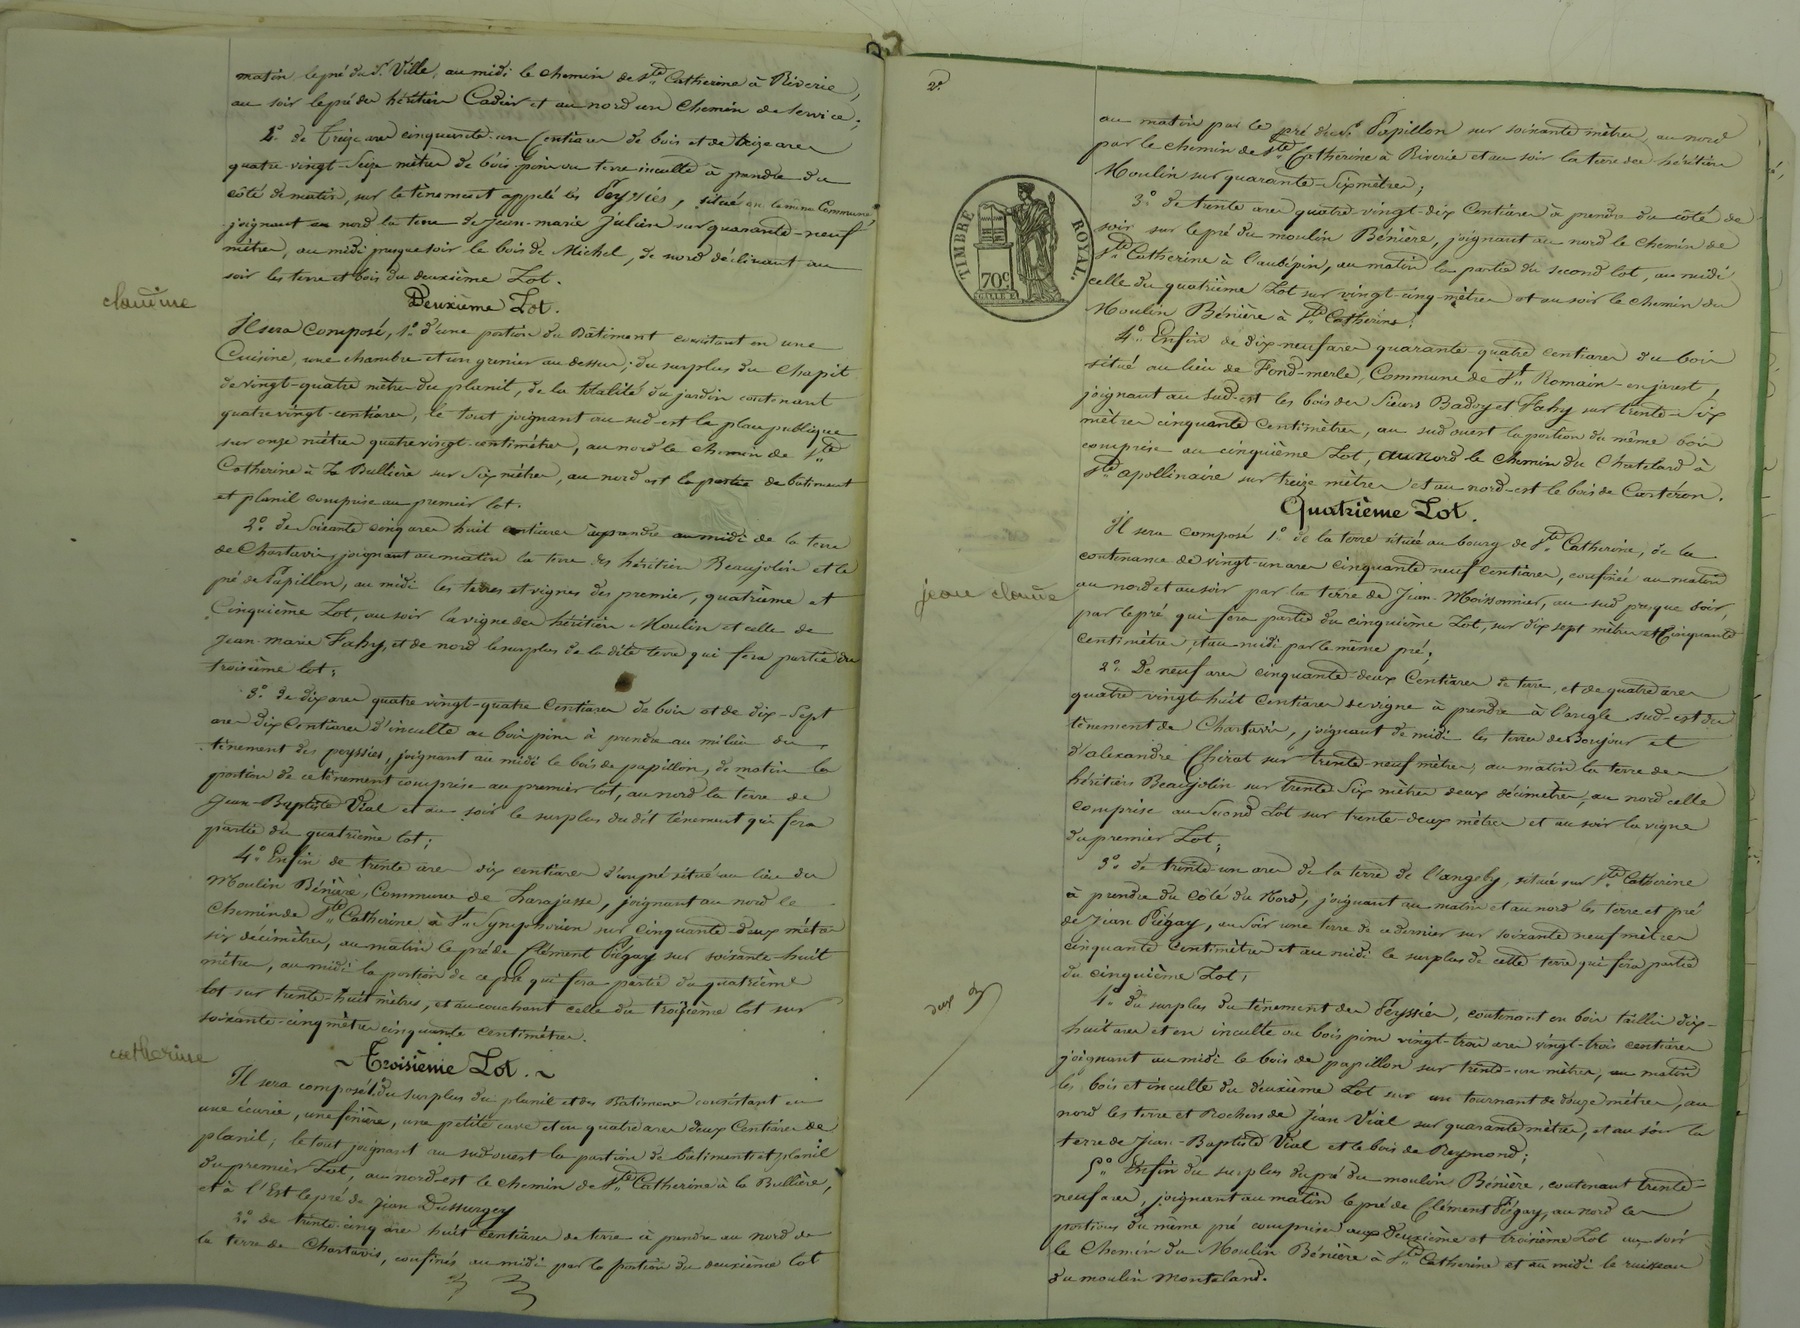 matin le pré du Sr. Ville, au midi le chemin de Ste Catherine à Riverie,
au soir le pré des héritiers Cadier et au nord un chemin de service;
2º. de treize ares cinquante-un centiares de bois et de treize ares
quatre-vingt-seize mètres de bois-pins ou terre inculte à prendre du
côté de matin, sur le tènement appelé les Peyssies, situé en la même Commune
joignant au nord la terre de Jean-Marie Julien sur quarante-neuf
mètres, au midi presque soir le bois de Michel, de nord déclinant au
soir les terre et bois du deuxième Lot.
claudine
Deuxième Lot.
Il sera composé, 1º. d'une portion du Bâtiment consistant en une
Cuisine, une chambre et un grenier au dessus; du surplus du Chapit
de vingt-quatre mètres du planil, de la totalité du jardin contenant
quatre vingt-centiares, le tout joignant au sud-est la place publique
sur onze mètres quatre vingt-centimètres, au nord le chemin de Ste
Catherine à La Bullière sur six mètres, au nord est la partie de bâtiment
et planil comprise au premier lot.
2º. de soixante cinq ares huit centiares à prendre au midi de la terre
de Chartavis, joignant au matin la terre des héritiers Beaujolin et le
pré de Papillon, au midi les terres et vignes des premier, quatrième et
Cinquième Lot, au soir la vigne des héritiers Moulin et celle de
Jean-Marie Fahy, et de nord le surplus de la dite terre qui fera partie du
troisième lot;
3º. de dix ares quatre-vingt-quatre centiares de bois et de dix-sept
ares dix centiares d'inculte ou bois pins à prendre au milieu du
tènement des peyssies, joignant au midi le bois de papillon, de matin la
portion de ce tènement comprise au premier lot, au nord la terre de
Jean-Baptiste Vial et au soir le surplus du dit tènement qui fera
partie du quatrième lot;
4º. Enfin de trente ares dix centiares d'un pré situé au lieu du
Moulin Bénière, Commune de Larajasse, joignant au nord le
chemin de Ste Catherine à St. Symphorien sur cinquante-deux mètres
six décimètres, au matin le pré de Clément Piégay sur soixante-huit
mètres, au midi la portion de ce pré qui fera partie du quatrième
lot sur trente-huit mètres, et au couchant celle du troisième lot sur
soixante-cinq mètres cinquante centimètres.
catherine
~ Troisième Lot. ~
Il sera composé 1º. du surplus du planil et des Bâtimens consistant en
une écurie, une fenière, une petite cave et en quatre ares deux centiares de
planil; le tout joignant au sud-ouest la portion de bâtiments et planil
du premier Lot, au nord-est le chemin de Ste Catherine à la Bullière,
et à l'Est le pré de Jean Dussurgey
2º. de trente-cinq ares huit centiares de terre à prendre au nord de
la terre de Chartavis, confinés au midi par la portion du deuxième lot
2.
TIMBRE ROYAL
70c
au matin par le pré du Sr. Papillon sur soixante mètres, au nord
par le chemin de Ste Catherine à Riverie et au soir la terre des héritiers
Moulin sur quarante-six mètres;
3º. de trente ares quatre-vingt-dix centiares à prendre du côté de
soir sur le pré du moulin Bénière, joignant au nord le chemin de
Ste Catherine à l'aubépin, au matin la partie du second lot, au midi
celle du quatrième Lot sur vingt-cinq mètres et au soir le chemin du
Moulin Bénière à Ste Catherine;
4º. Enfin de dix-neuf ares quarante quatre centiares du bois
situé au lieu de Fond-merle, Commune de St. Romain-en-jarest,
joignant au sud-est les bois des Sieurs Badoy et Fahy sur trente-six
mètres cinquante centimètres, au sud ouest la portion du même bois
comprise au cinquième Lot, au nord le chemin du Chatelard à
Ste apollinaire sur treize mètres et au nord-est le bois de Cartéron.
Quatrième Lot.
jean claude
Il sera composé 1º. de la terre située au bourg de Ste Catherine, de la
contenance de vingt-un ares cinquante neuf centiares, confinée au matin
au nord et au soir par la terre de Jean-Moissonnier, au sud presque soir,
par le pré qui fera partie du cinquième Lot, sur dix sept mètres et Cinquante
centimètres, et au midi par le même pré;
2º. De neuf ares cinquante-deux centiares de terre, et de quatre ares
quatre vingt-huit centiares de vigne à prendre à l'angle sud-est du
tènement de Chartavis, joignant de midi les terres de Bonjour et
d'alexandre Chirat sur trente-neuf mètres, au matin la terre des
héritiers Beaujolin sur trente six mètres deux décimètres, au nord celle
comprise au second Lot sur trente-deux mètres et au soir la vigne
du premier Lot;
3º. de trente-un ares de la terre de l'angeby, située sur Ste Catherine
à prendre du côté du Nord, joignant au matin et au nord les terre et pré
de Jean Piégay, au soir une terre de ce dernier sur soixante neuf mètres
cinquante centimètres et au midi le surplus de cette terre qui fera partie
du cinquième Lot;
4º. du surplus du tènement des Peyssies, contenant en bois taillis dix-
huit ares et en inculte ou bois pins vingt-trois ares vingt-trois centiares
joignant au midi le bois de papillon sur trente-un mètres, au matin
les bois et inculte du deuxième Lot sur un tournant de douze mètres, au
nord les terre et Rochers de Jean Vial sur quarante mètres, et au soir la
terre de Jean-Baptiste Vial et le bois de Reymond;
5º. Enfin du surplus du pré du moulin Bénière, contenant trente-
neuf ares, joignant au matin le pré de Clément Piégay, au nord les
portions du même pré comprises aux deuxième et troisième Lot au soir
le Chemin du Moulin Bénière à Ste Catherine et au midi le ruisseau
du moulin Montaland.